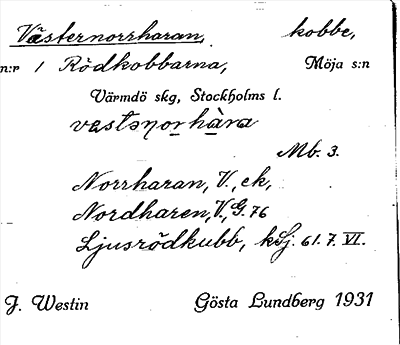 Västernorrharan, kobbe,
n:r 1 Rödkobbarna, Möja s:n
Värmdö skg, Stockholms l.
vastənorhàra
Mb. 3.
Norrharan, V., ek,
Nordharen, V., G. 76
Ljusrödkubb, kSj. 61. 7. VI.
J. Westin Gösta Lundberg 1931